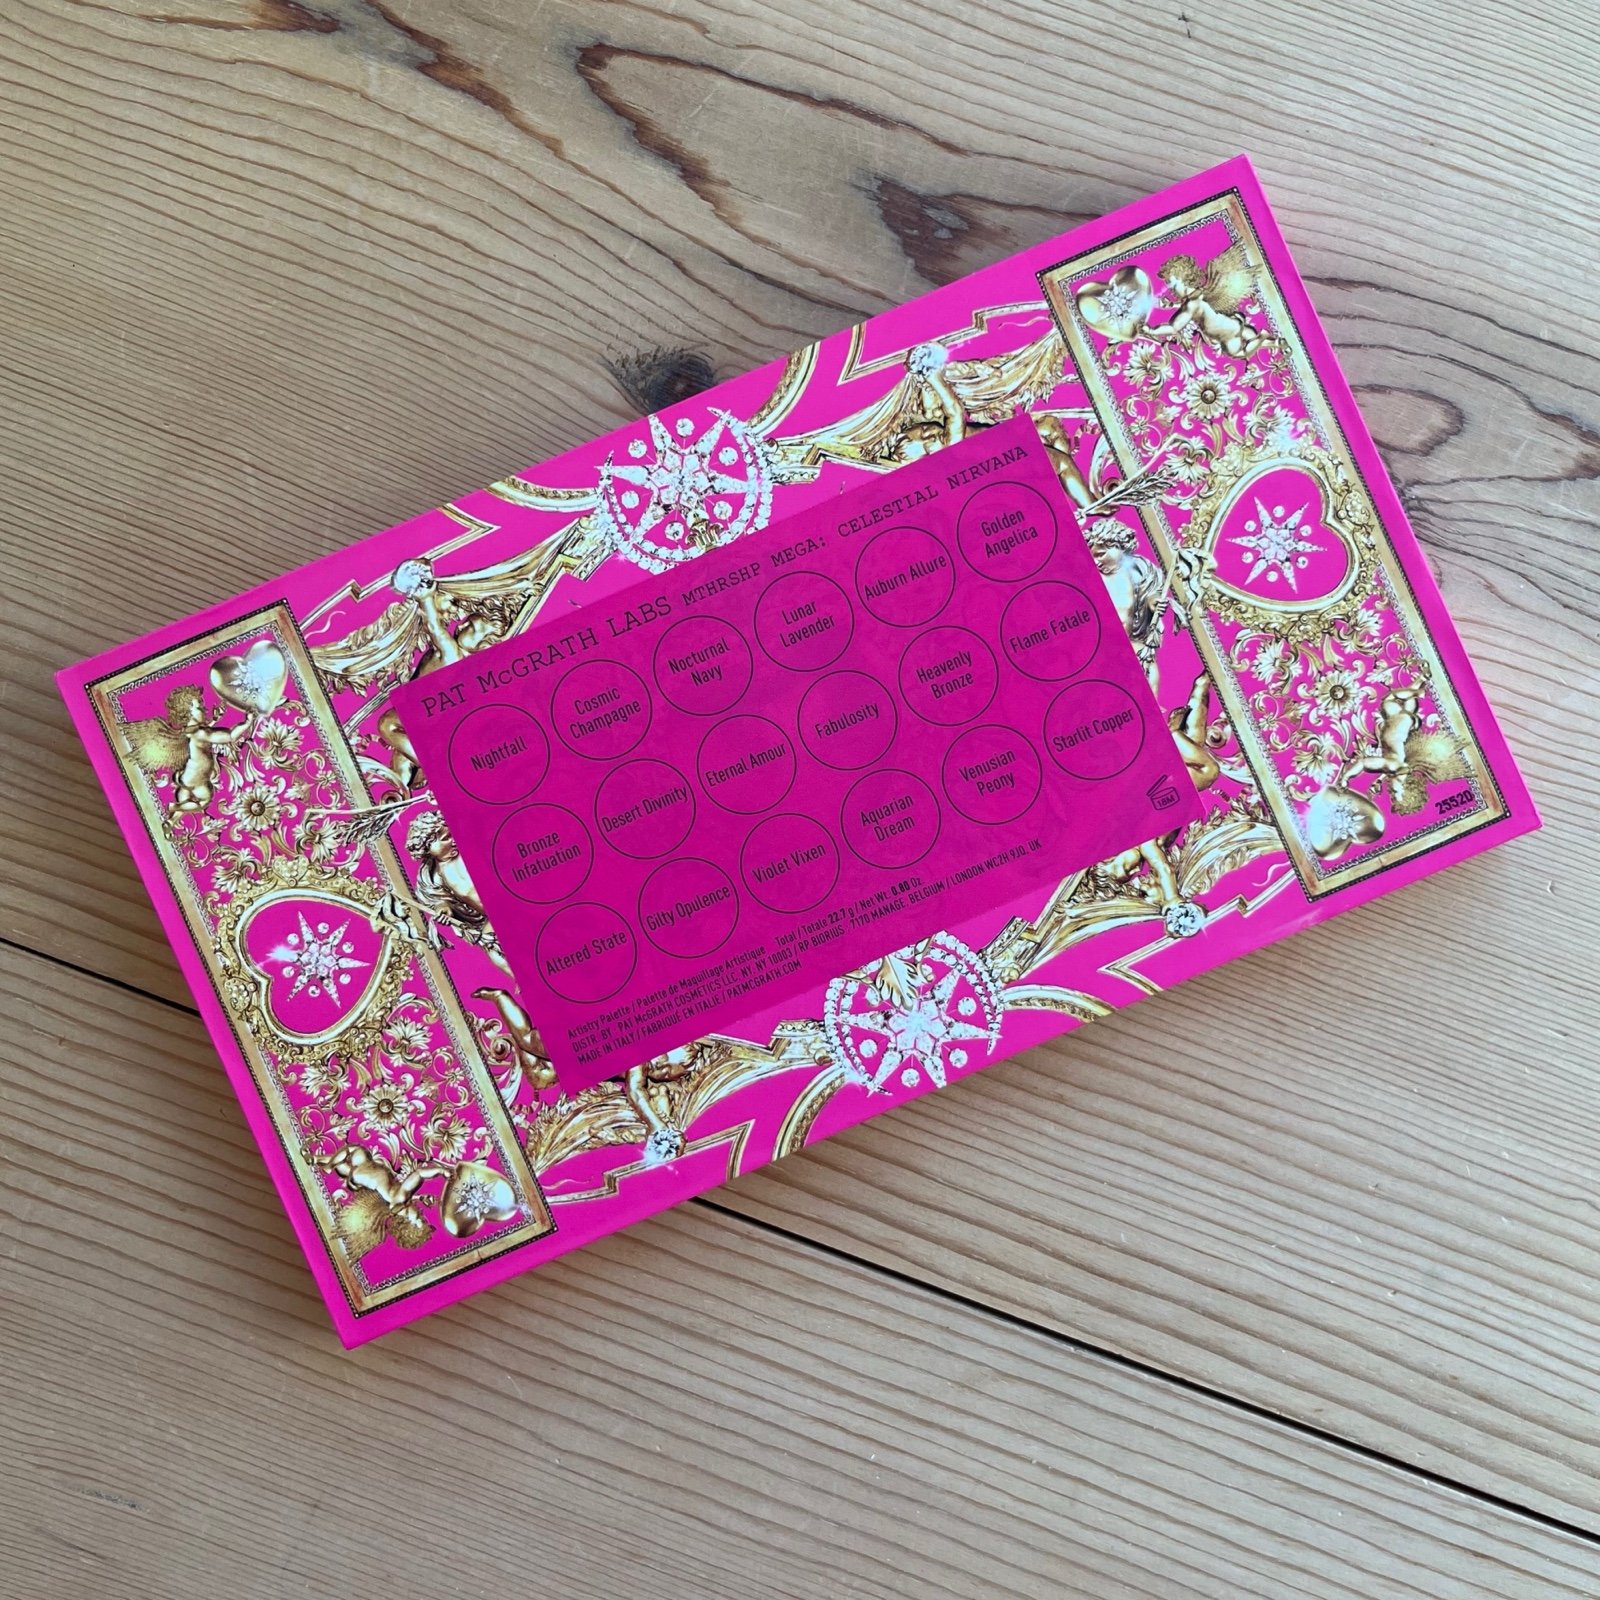 PAT McGRATH LABS MTHRSHP MEGA: CELESTIAL NIRVANA
Nightfall
Cosmic
Champagne
Nocturnal
Navy
Lunar
Lavender
Auburn Allure
Golden
Angelica
Bronze
Infatuation
Desert Divinity
Eternal Amour
Fabulosity
Heavenly
Bronze
Flame Fatale
Altered State
Gilty Opulence
Violet Vixen
Aquarian
Dream
Venusian
Peony
Starlit Copper
Artistry Palette / Palette de Maquillage Artistique Total / Totale 22.7 g / Net Wt. 0.80 Oz
DISTR. BY PAT McGRATH COSMETICS LLC, NY, NY 10003 / RP BIORIUS - 7170 MANAGE, BELGIUM / LONDON WC2H 9JQ, UK
MADE IN ITALY / FABRIQUÉ EN ITALIE / PATMCGRATH.COM
18M
25520